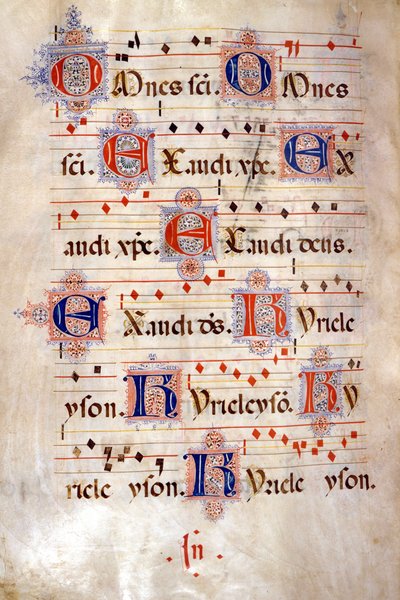 OMnes sci. OMnes
sci. EXaudi xpe. EX
audi xpe. EXaudi deus.
EXaudi ds. KYriele
yson. KYrieleyso. KY
riele yson. KYriele yson.
In